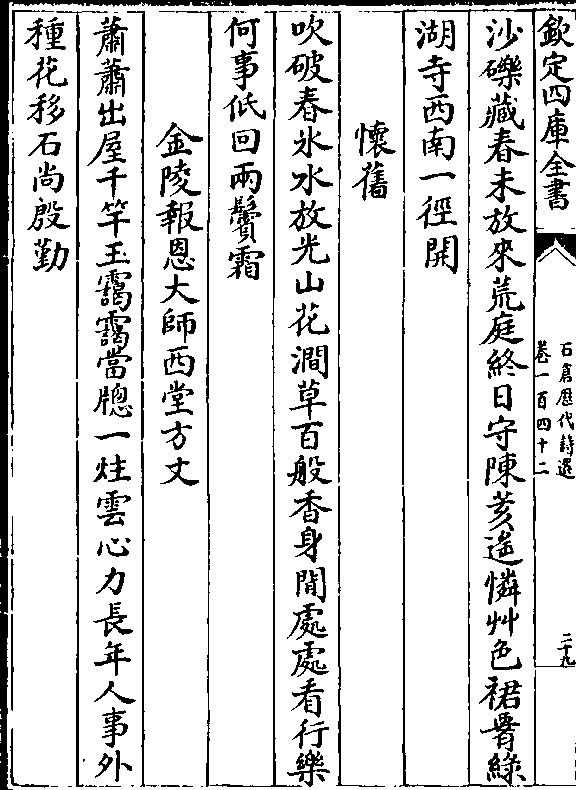 欽定四庫全書
石倉歷代詩選
卷一百四十二
二十九
沙礫藏春未放來荒庭終日守陳荄遙憐艸色裙𦝫綠
湖寺西南一徑開
懷舊
吹破春氷水放光山花澗草百般香身閒處處看行樂
何事低回兩鬢霜
金陵報恩大師西堂方丈
蕭蕭出屋千竿玉靄靄當牕一炷雲心力長年人事外
種花移石尚殷勤